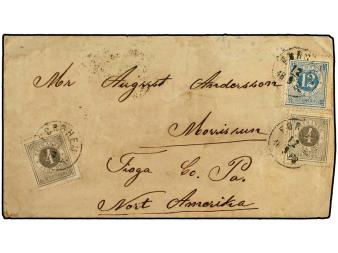 Mr August Andersson
Morrisrun
Tioga Co. Pa.
Nort Amerika
12
4
4